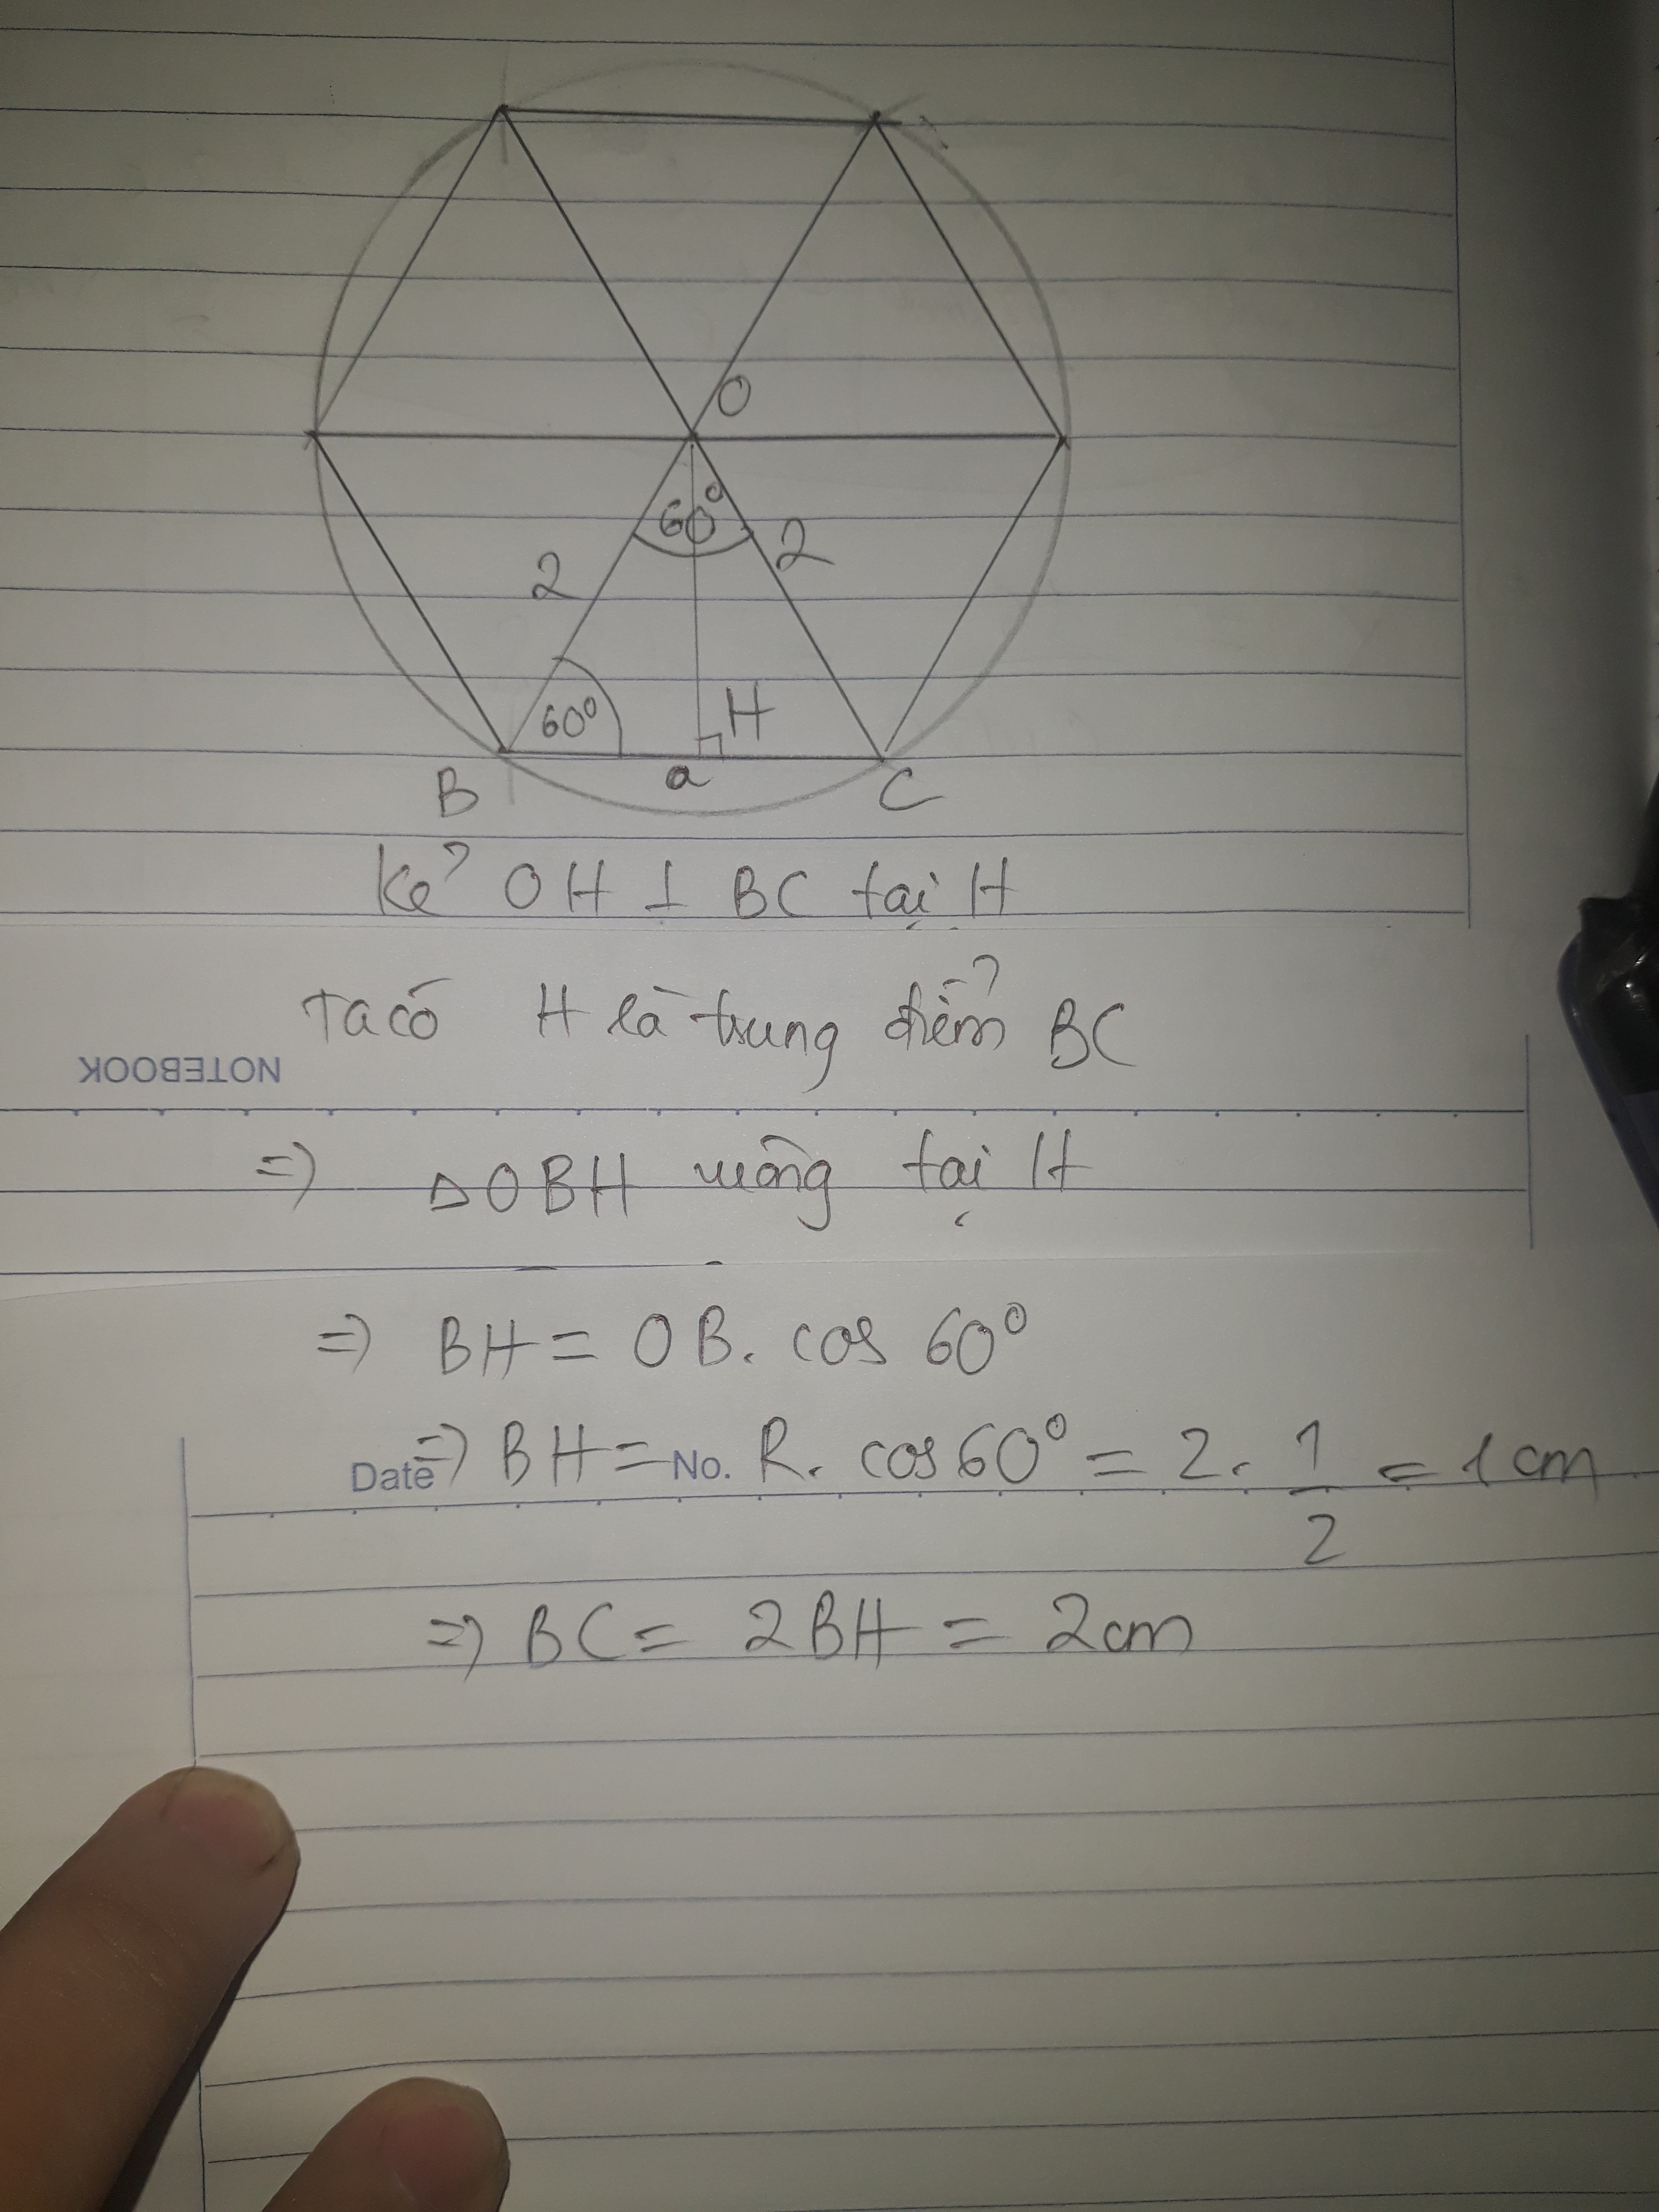 O
60°
2
2
60°
H
B
a
C
Kẻ OH ⊥ BC tại H
Ta có H là trung điểm BC
NOTEBOOK
=> △OBH vuông tại H
=> BH = OB. cos 60°
=> BH = R. cos 60° = 2. 1/2 = 1 cm
Date No.
=> BC = 2BH = 2cm